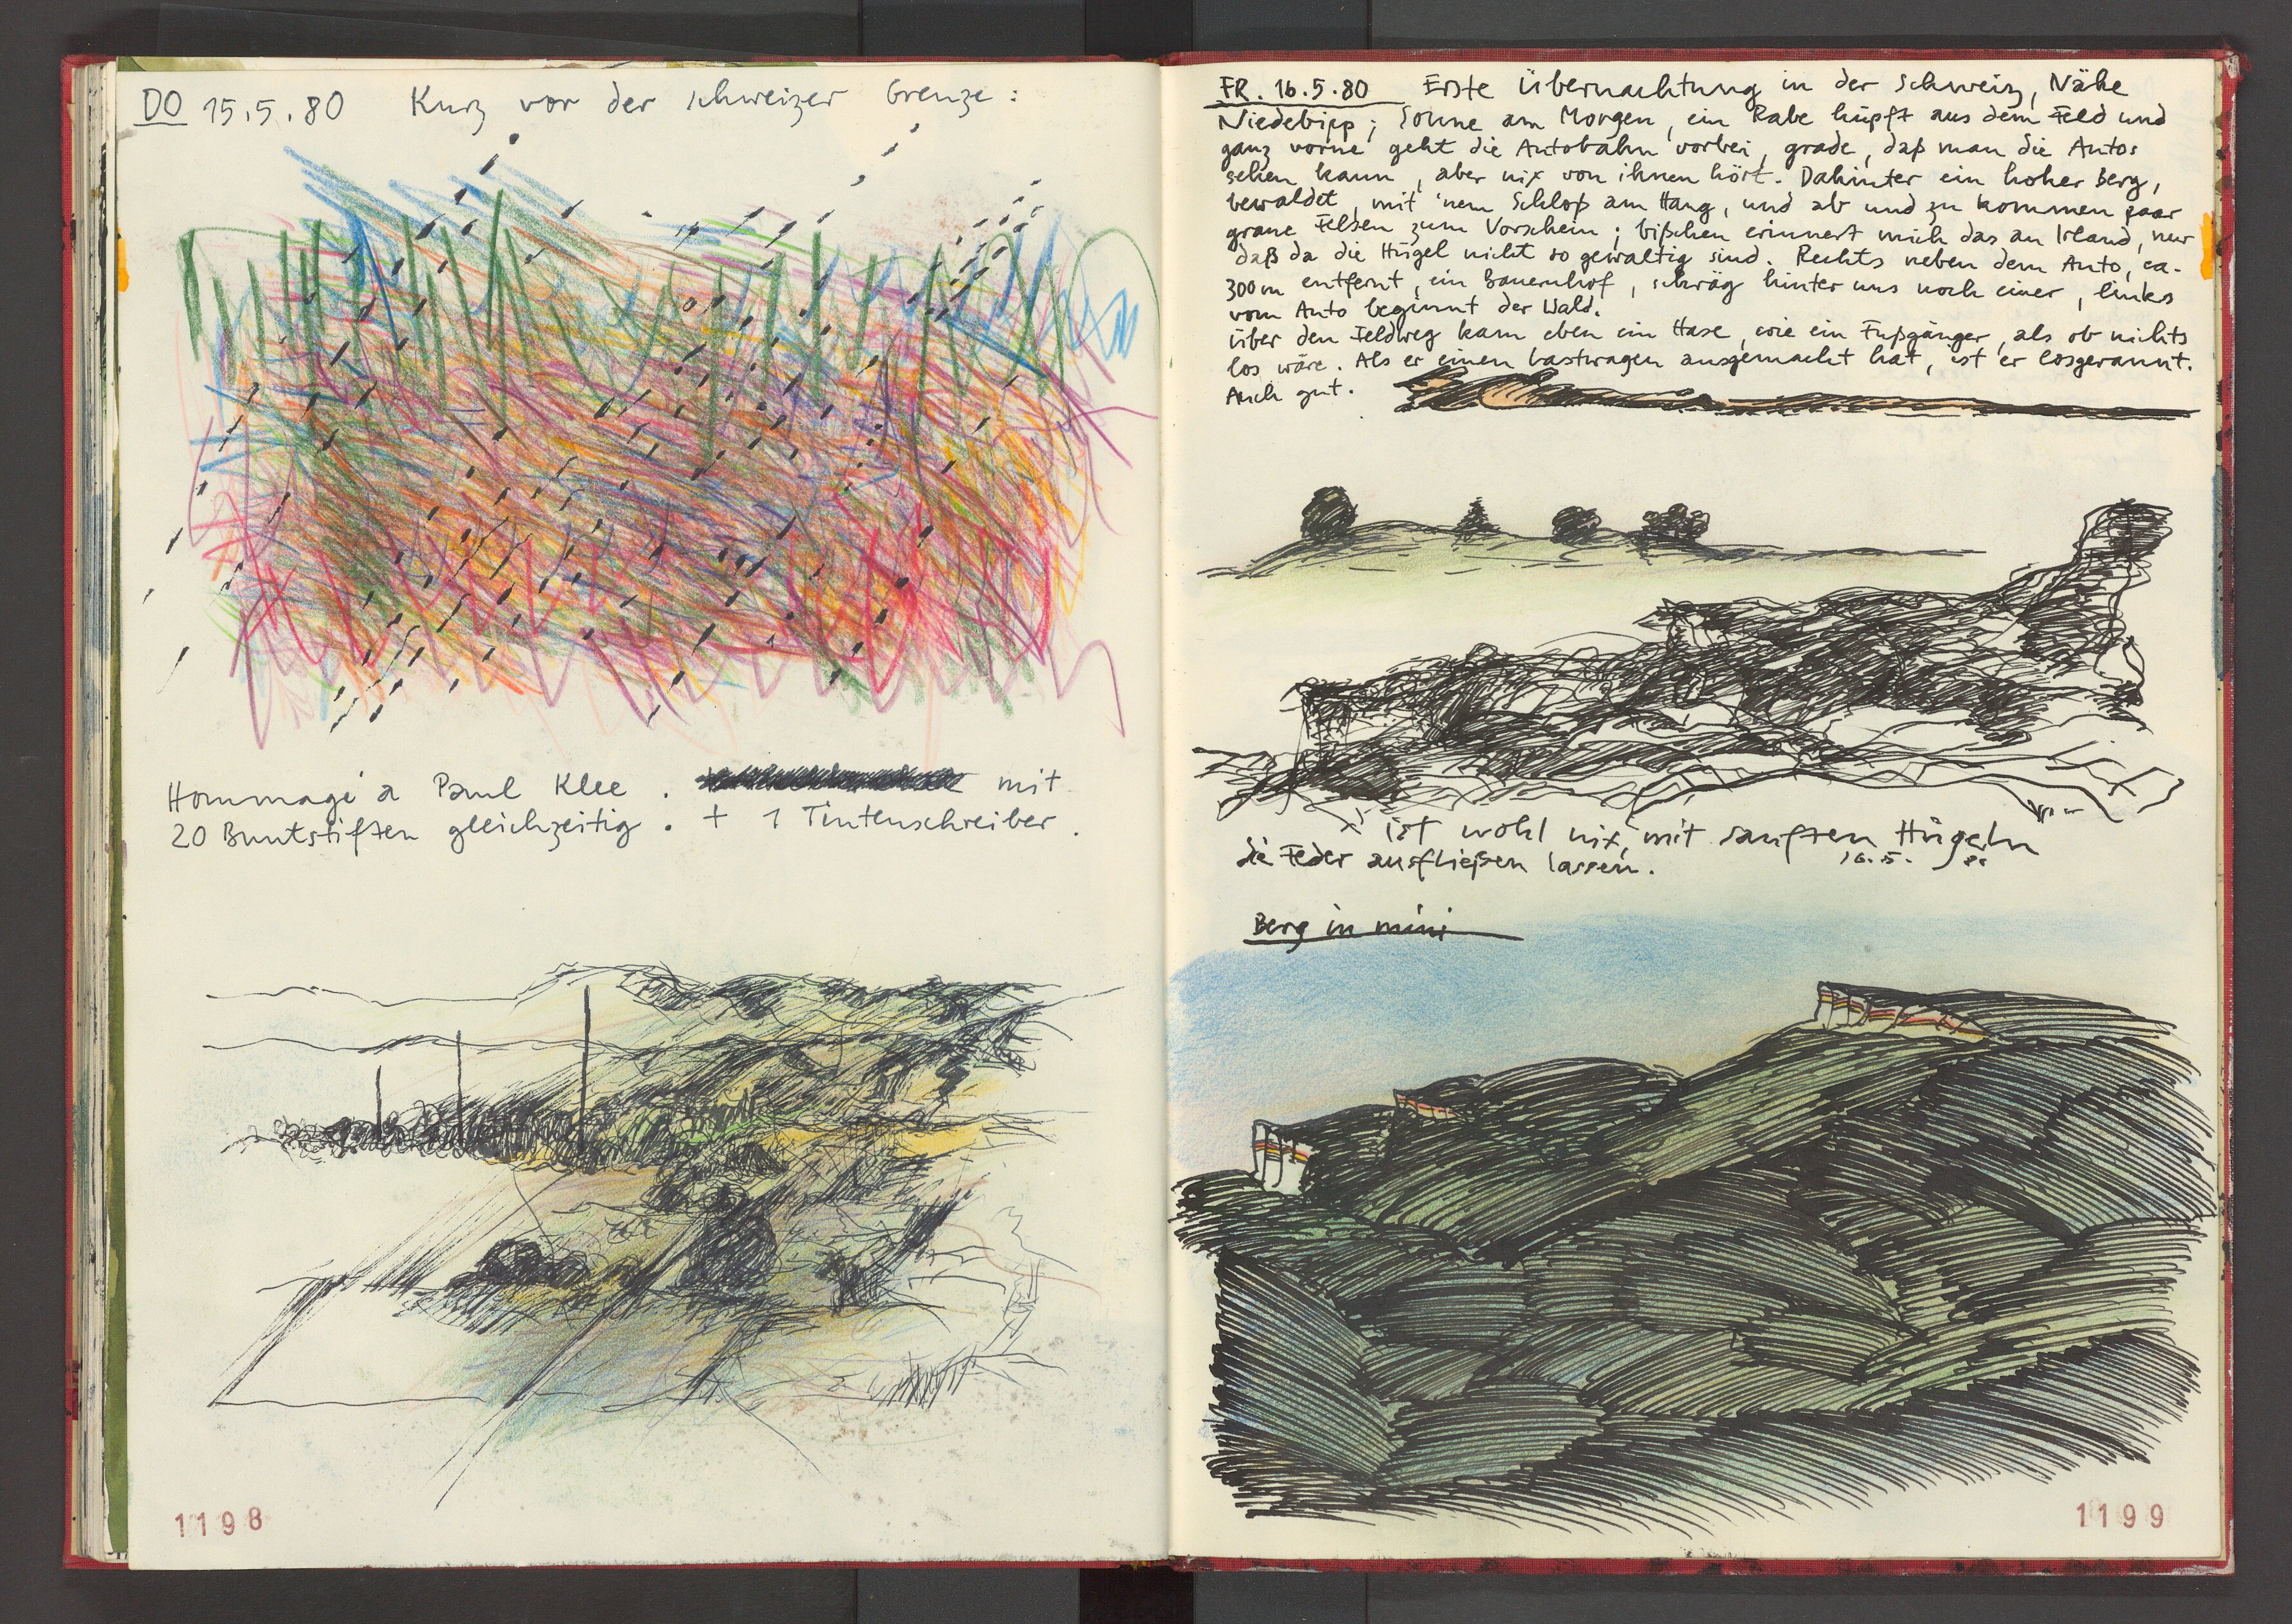 DO 15.5.80 Kurz vor der schweizer Grenze:
Hommage à Paul Klee. mit
20 Buntstiften gleichzeitig. + 1 Tintenschreiber.
1198
FR. 16.5.80 Erste Übernachtung in der Schweiz, Nähe
Niedebipp; Sonne am Morgen, ein Rabe hüpft aus dem Feld und
ganz vorne geht die Autobahn vorbei, grade, daß man die Autos
sehen kann, aber nix von ihnen hört. Dahinter ein hoher Berg,
bewaldet, mit 'nem Schloß am Hang, und ab und zu kommen paar
graue Felsen zum Vorschein; bißchen erinnert mich das an Irland, nur
daß da die Hügel nicht so gewaltig sind. Rechts neben dem Auto, ca.
300m entfernt, ein Bauernhof, schräg hinter uns noch einer, links
vom Auto beginnt der Wald.
Über den Feldweg kam eben ein Hase, wie ein Fußgänger, als ob nichts
los wäre. Als er einen Lastwagen ausgemacht hat, ist er losgerannt.
Auch gut.
ist wohl nix, mit sanften Hügeln
die Feder ausfließen lassen. 16.5. 80
Berg in mini
1199